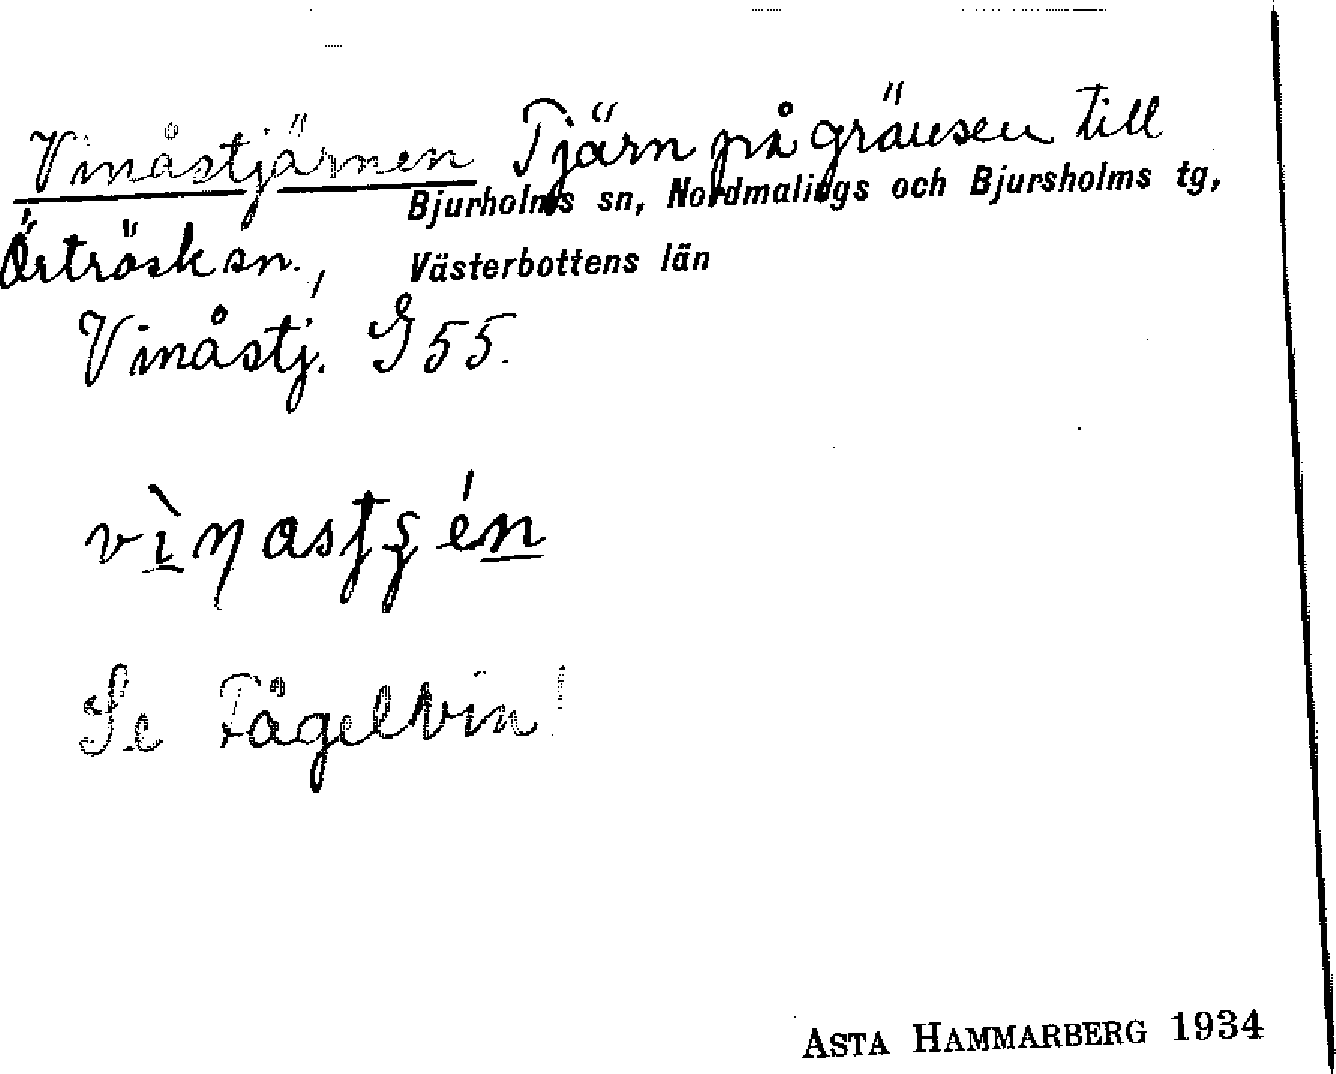 Vinåstjärnen Tjärn på gränsen till
Bjurholms sn, Nordmalings och Bjursholms tg,
Örträsk sn., Västerbottens län
Vinåstj. G 55.
Se Fågelvin!
ASTA HAMMARBERG 1934